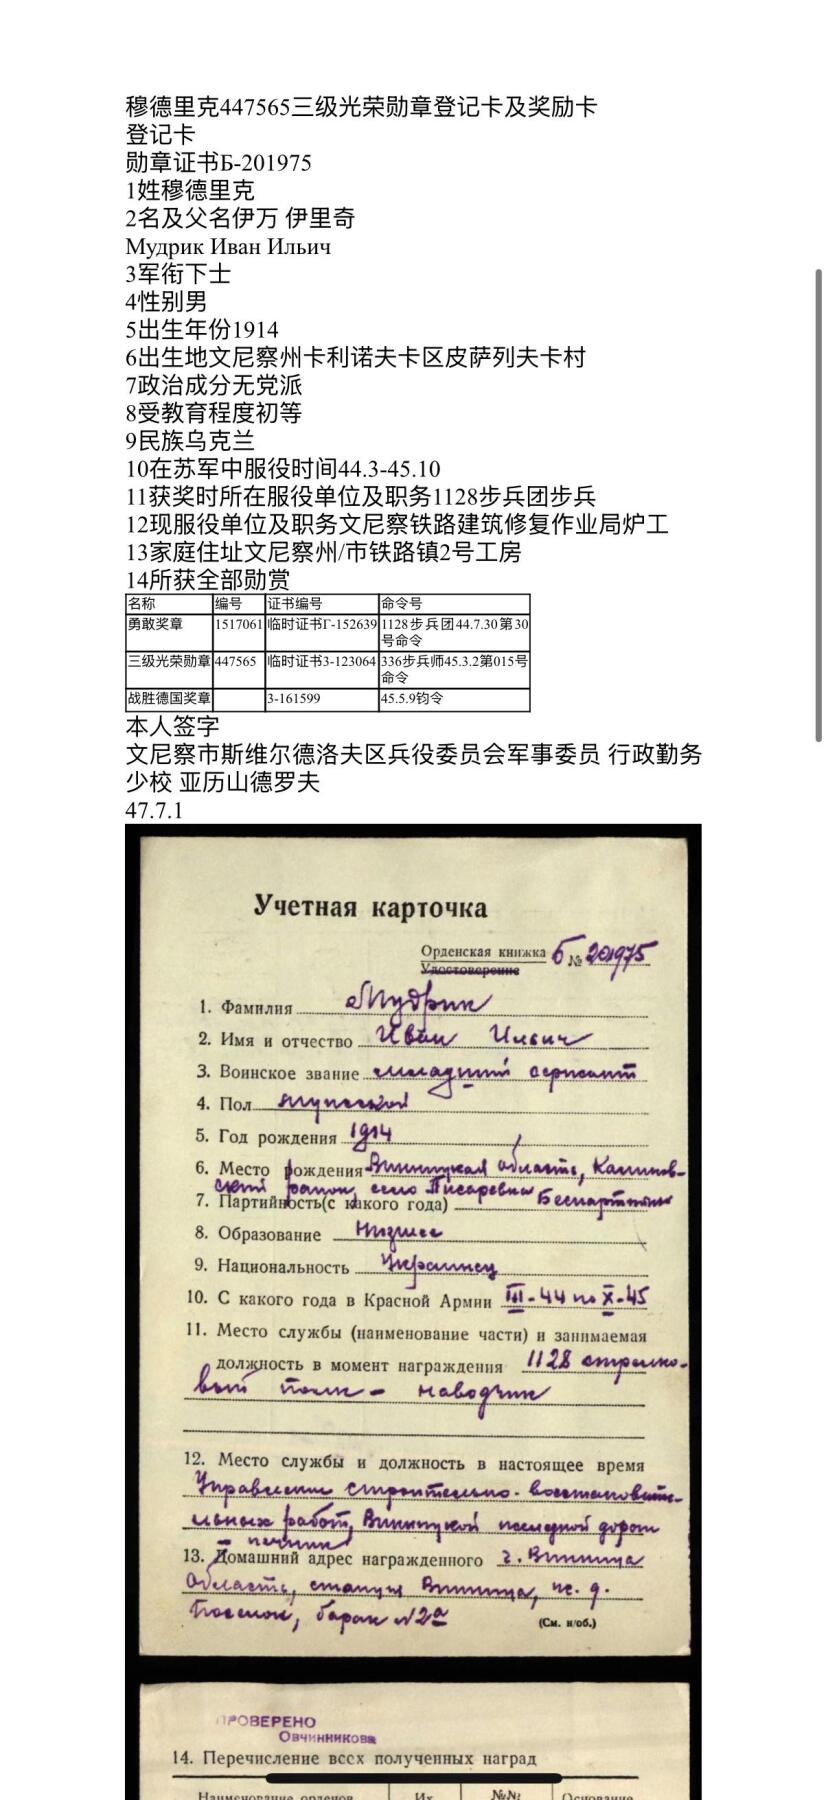 穆德里克447565三级光荣勋章登记卡及奖励卡
登记卡
勋章证书Б-201975
1姓穆德里克
2名及父名伊万 伊里奇
Мудрик Иван Ильич
3军衔下士
4性别男
5出生年份1914
6出生地文尼察州卡利诺夫卡区皮萨列夫卡村
7政治成分无党派
8受教育程度初等
9民族乌克兰
10在苏军中服役时间44.3-45.10
11获奖时所在服役单位及职务1128步兵团步兵
12现服役单位及职务文尼察铁路建筑修复作业局炉工
13家庭住址文尼察州/市铁路镇2号工房
14所获全部勋赏
名称 编号 证书编号 命令号
勇敢奖章 1517061 临时证书Г-152639 1128步兵团44.7.30第30
号命令
三级光荣勋章 447565 临时证书З-123064 336步兵师45.3.2第015号
命令
战胜德国奖章 З-161599 45.5.9钧令
本人签字
文尼察市斯维尔德洛夫区兵役委员会军事委员 行政勤务
少校 亚历山德罗夫
47.7.1
Учетная карточка
Орденская книжка Б № 201975
Удостоверение
1. Фамилия Мудрик
2. Имя и отчество Иван Ильич
3. Воинское звание младший сержант
4. Пол мужской
5. Год рождения 1914
6. Место рождения Винницкая область, Калинов-
ский район, село Писаревка
7. Партийность(с какого года) Беспартийный
8. Образование Низшее
9. Национальность Украинец
10. С какого года в Красной Армии III-44 по X-45
11. Место службы (наименование части) и занимаемая
должность в момент награждения 1128 стрелко-
вый полк - наводчик
12. Место службы и должность в настоящее время
Управление строительно-восстановите-
льных работ, Винницкой железной дороги
- печник
13. Домашний адрес награжденного г. Винница
область, станция Винница, ж. д.
Поселок, барак №2а
(См. н/об.)
ПРОВЕРЕНО
Овчинникова
14. Перечисление всех полученных наград
Наименование орденов Их №№ Основание